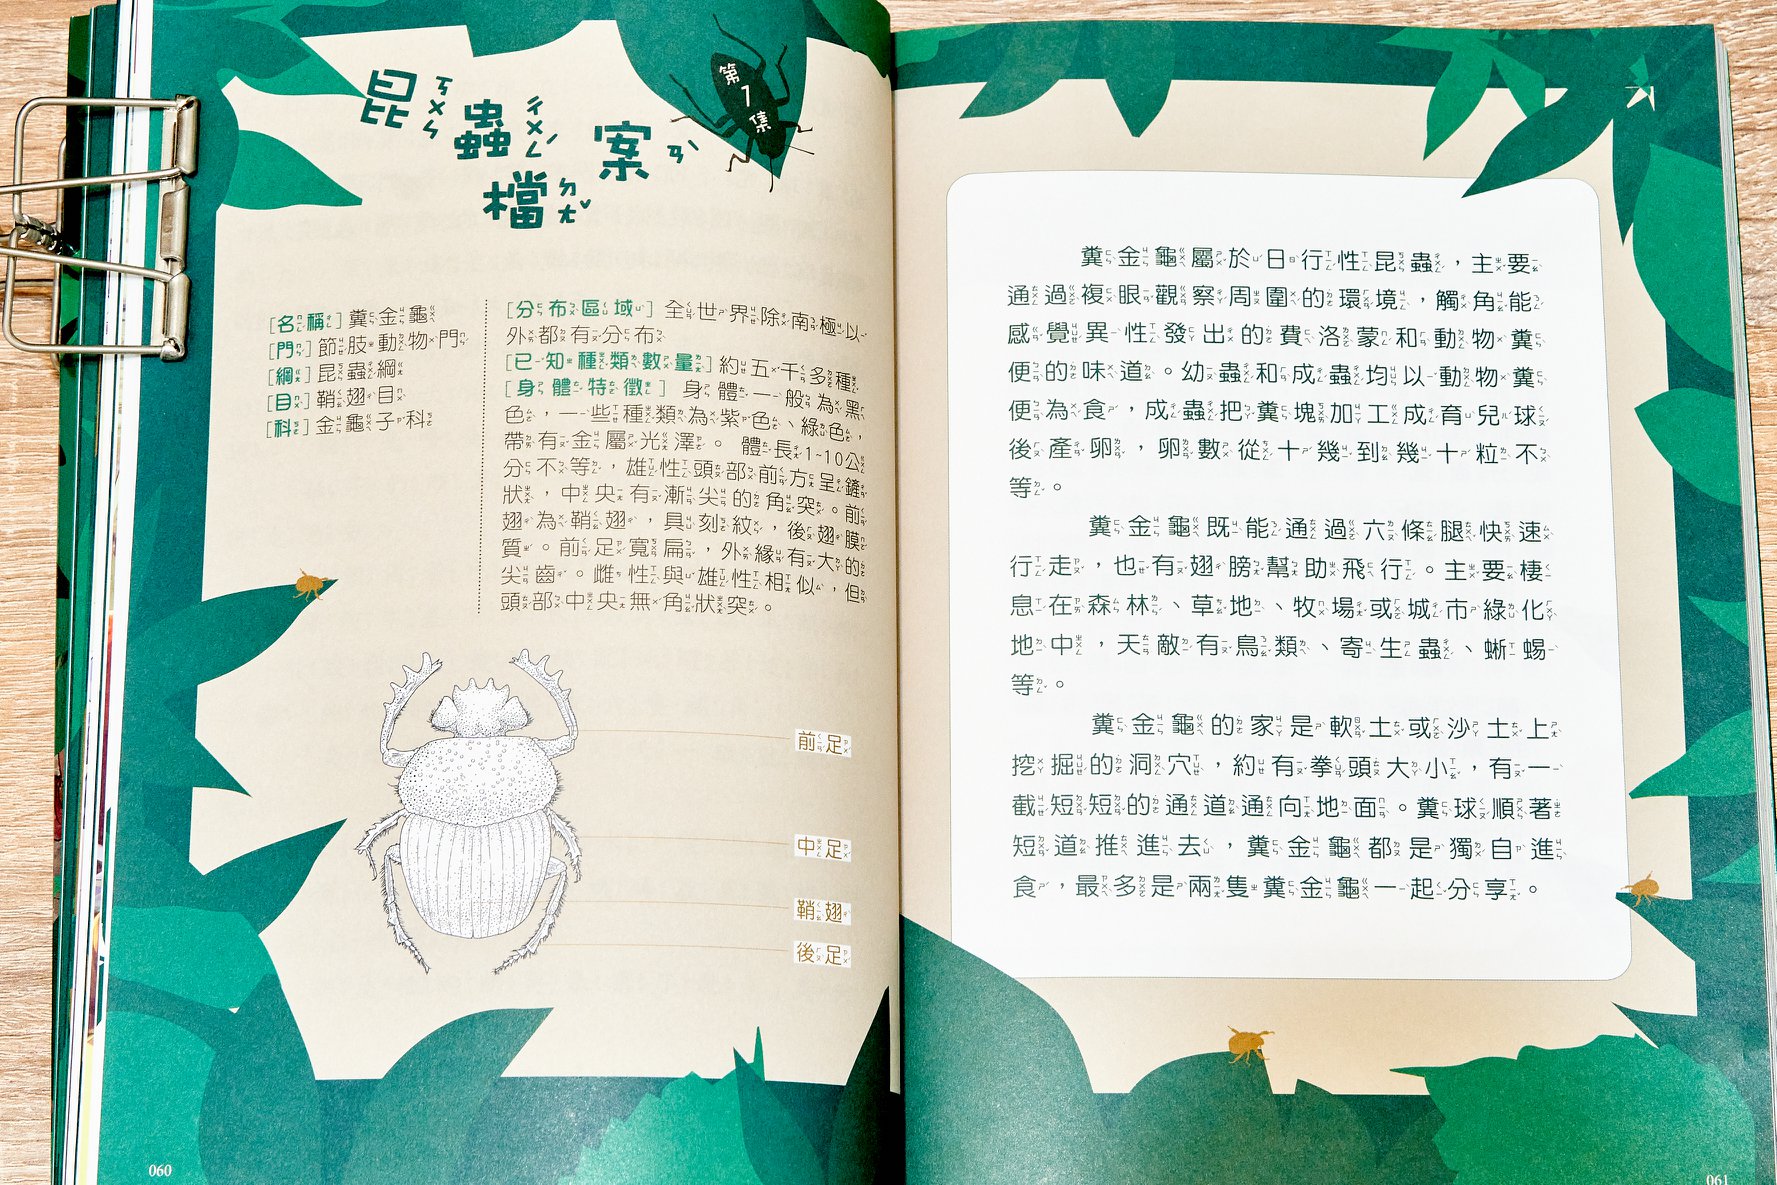 昆蟲檔案
第1集
[名稱]糞金龜
[門]節肢動物門
[綱]昆蟲綱
[目]鞘翅目
[科]金龜子科
[分布區域] 全世界除南極以
外都有分布
[已知種類數量]約五千多種
[身體特徵] 身體一般為黑
色，一些種類為紫色、綠色，
帶有金屬光澤。 體長1~10公
分不等，雄性頭部前方呈鏟
狀，中央有漸尖的角突。前
翅為鞘翅，具刻紋，後翅膜
質。前足寬扁，外緣有大的
尖齒。雌性與雄性相似，但
頭部中央無角狀突。
前足
中足
鞘翅
後足
060
糞金龜屬於日行性昆蟲，主要
通過複眼觀察周圍的環境，觸角能
感覺異性發出的費洛蒙和動物糞
便的味道。幼蟲和成蟲均以動物糞
便為食，成蟲把糞塊加工成育兒球
後產卵，卵數從十幾到幾十粒不
等。
糞金龜既能通過六條腿快速
行走，也有翅膀幫助飛行。主要棲
息在森林、草地、牧場或城市綠化
地中，天敵有鳥類、寄生蟲、蜥蜴
等。
糞金龜的家是軟土或沙土上
挖掘的洞穴，約有拳頭大小，有一
截短短的通道通向地面。糞球順著
短道推進去，糞金龜都是獨自進
食，最多是兩隻糞金龜一起分享。
061